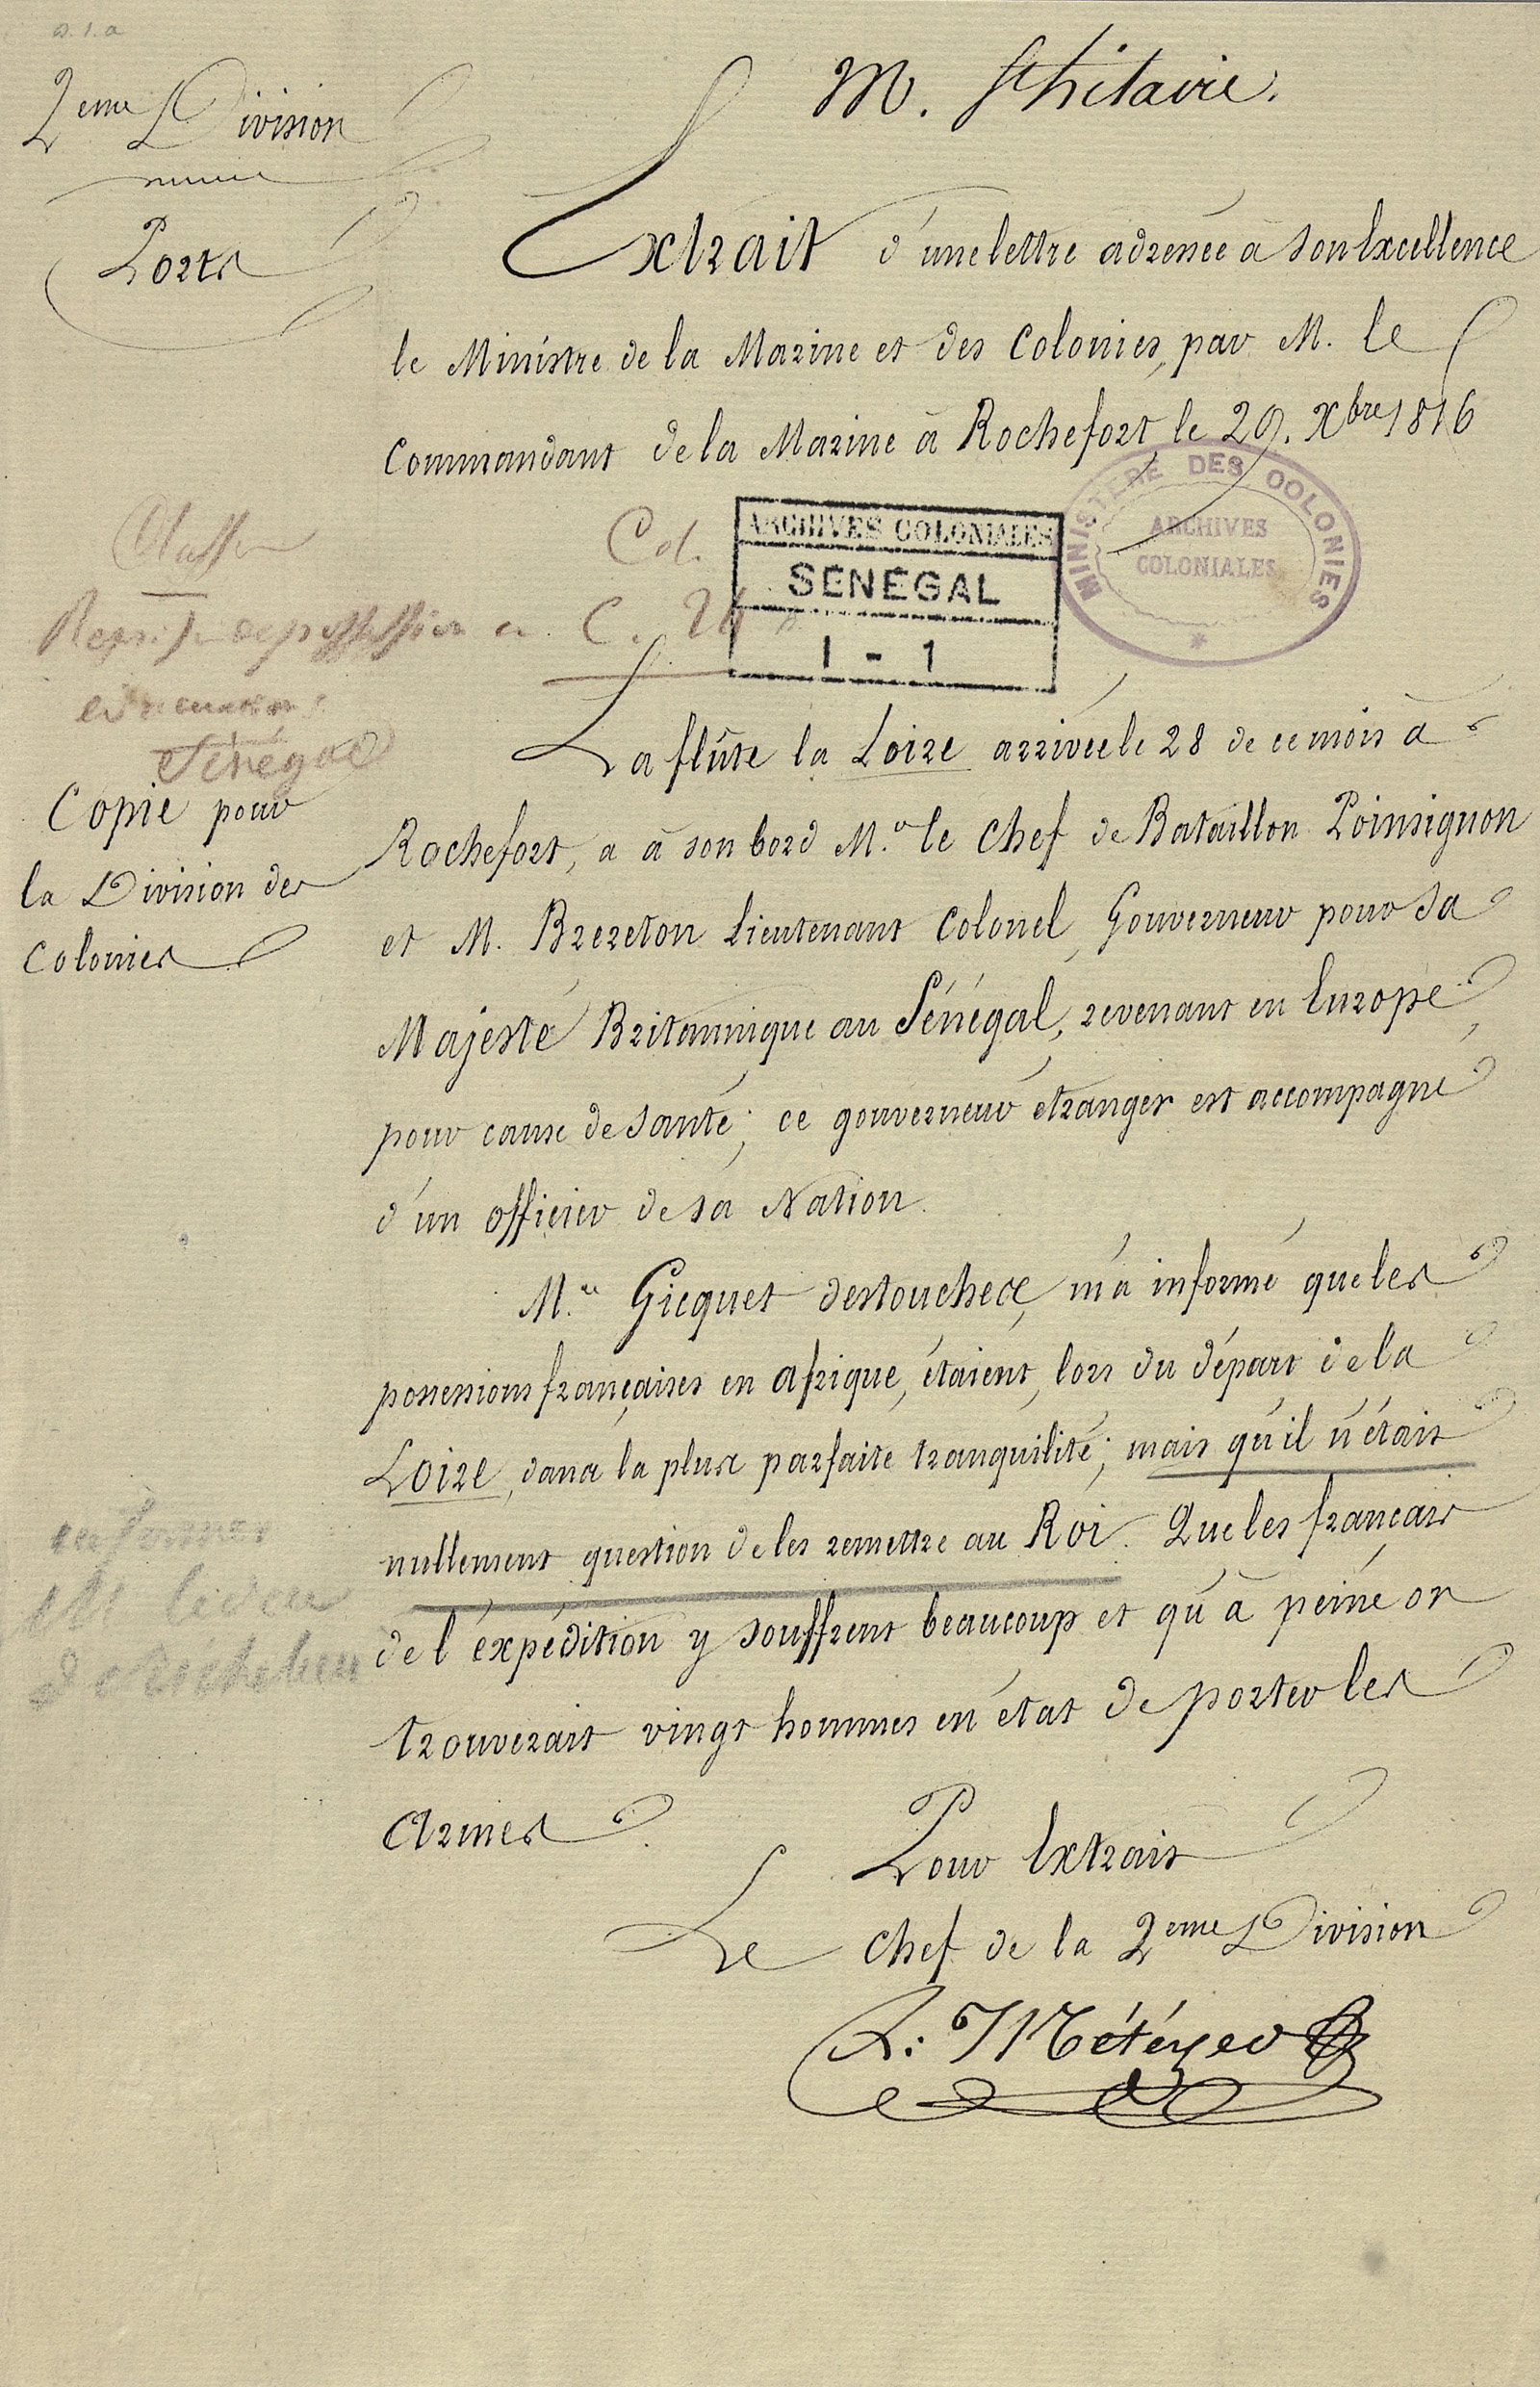 2eme Division
Ports
M. St hilaire.
Extrait d'une lettre adressée à Son Excellence
le Ministre de la Marine et des Colonies, par M. le
Commandant de la Marine à Rochefort le 29. Xbre 1816
MINISTERE DES COLONIES
ARCHIVES
COLONIALES
ARCHIVES COLONIALES
SENEGAL
I - 1
Classer
Cd.
C. 24
Sénégal
Copie pour
la Division des
Colonies
La flûte la Loire arrivée le 28 de ce mois à
Rochefort, a à son bord M. le Chef de Bataillon Poinsignon
et M. Brereton Lieutenant Colonel, Gouverneur pour Sa
Majesté Britannique au Sénégal, revenant en Europe,
pour cause de santé; ce gouverneur étranger est accompagné
d'un officier de sa Nation.
M. Gicquet destouches, m'a informé que les
possessions françaises en afrique, étaient, lors du départ de la
Loire, dans la plus parfaite tranquilité; mais qu'il n'était
nullement question de les remettre au Roi. Que les français
de l'expédition y souffrent beaucoup et qu'à peine on
trouverait vingt hommes en état de porter les
Armes.
informer
M le duc
de Richelieu
Pour Extrait
Le Chef de la 2eme Division